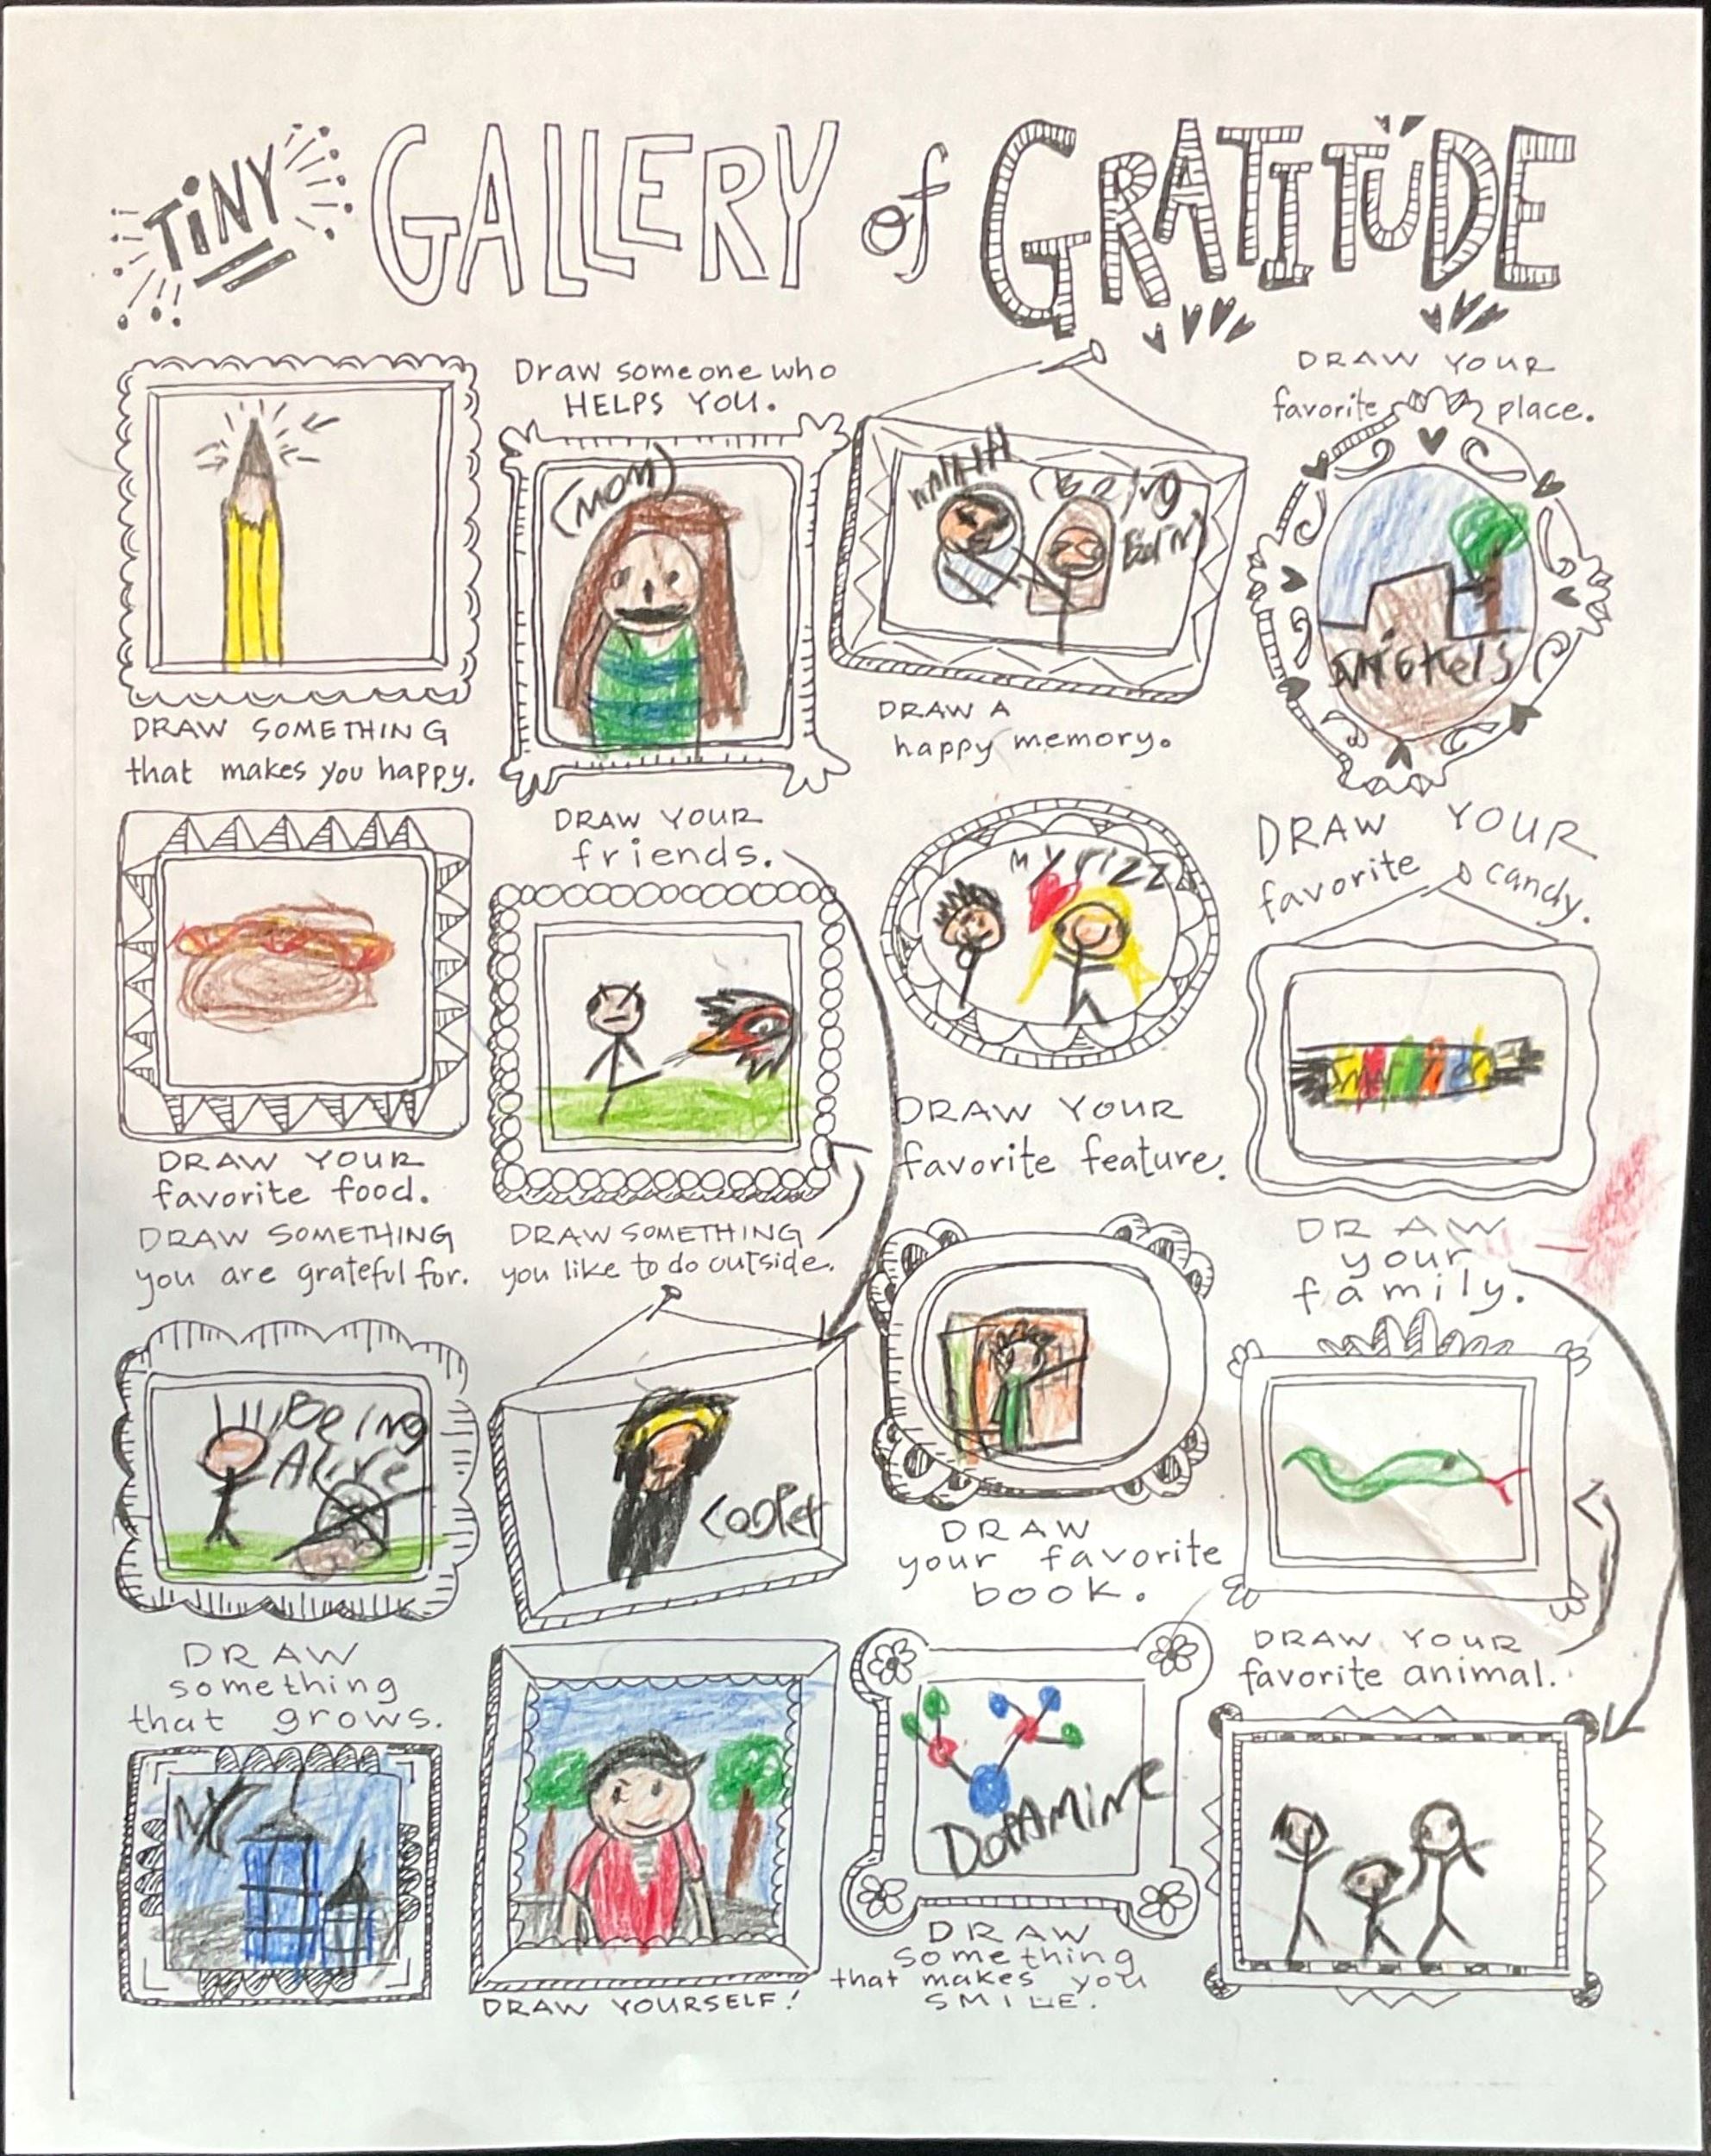 TiNY GALLERY of GRATITUDE
DRAW SOMETHING
that makes you happy.
Draw someone who
HELPS YOU.
(MOM)
WAHH
(Being
Born)
DRAW A
happy memory.
DRAW YOUR
favorite place.
DRAW YOUR
favorite food.
DRAW YOUR
friends.
MY rizz
DRAW YOUR
favorite feature.
DRAW YOUR
favorite candy.
DRAW SOMETHING
you are grateful for.
DRAW SOMETHING
you like to do outside.
DRAW
your
family.
Being
Alive
Cooper
DRAW
your favorite
book.
DRAW YOUR
favorite animal.
DRAW
something
that grows.
NYC
DRAW YOURSELF!
DOPAMINE
DRAW
something
that makes you
SMILE.